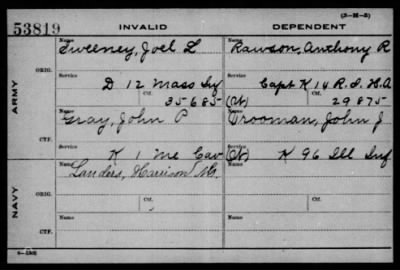 (3-M-5)
53819 INVALID DEPENDENT
Name Name
Sweeney, Joel L Rawson, Anthony R
ORIG.
Service Service
D 12 Mass Inf Capt K 14 R.I. H.A
Ctf. Ctf.
35685 (W) 29875
ARMY
Name Name
Gray, John P Trooman, John J
CTF.
Service
K 1 Me Cav (W) K 96 Ill Inf
Name Name
Landers, Harrison
ORIG.
Ctf. Ctf.
NAVY
Name Name
CTF.